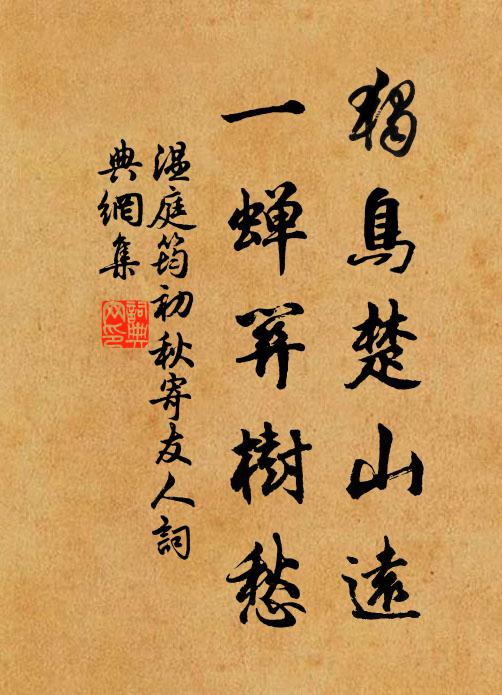 獨鳥楚山遠
一蟬關樹愁
温庭筠初秋寄友人詞
典網集
詞典
网印